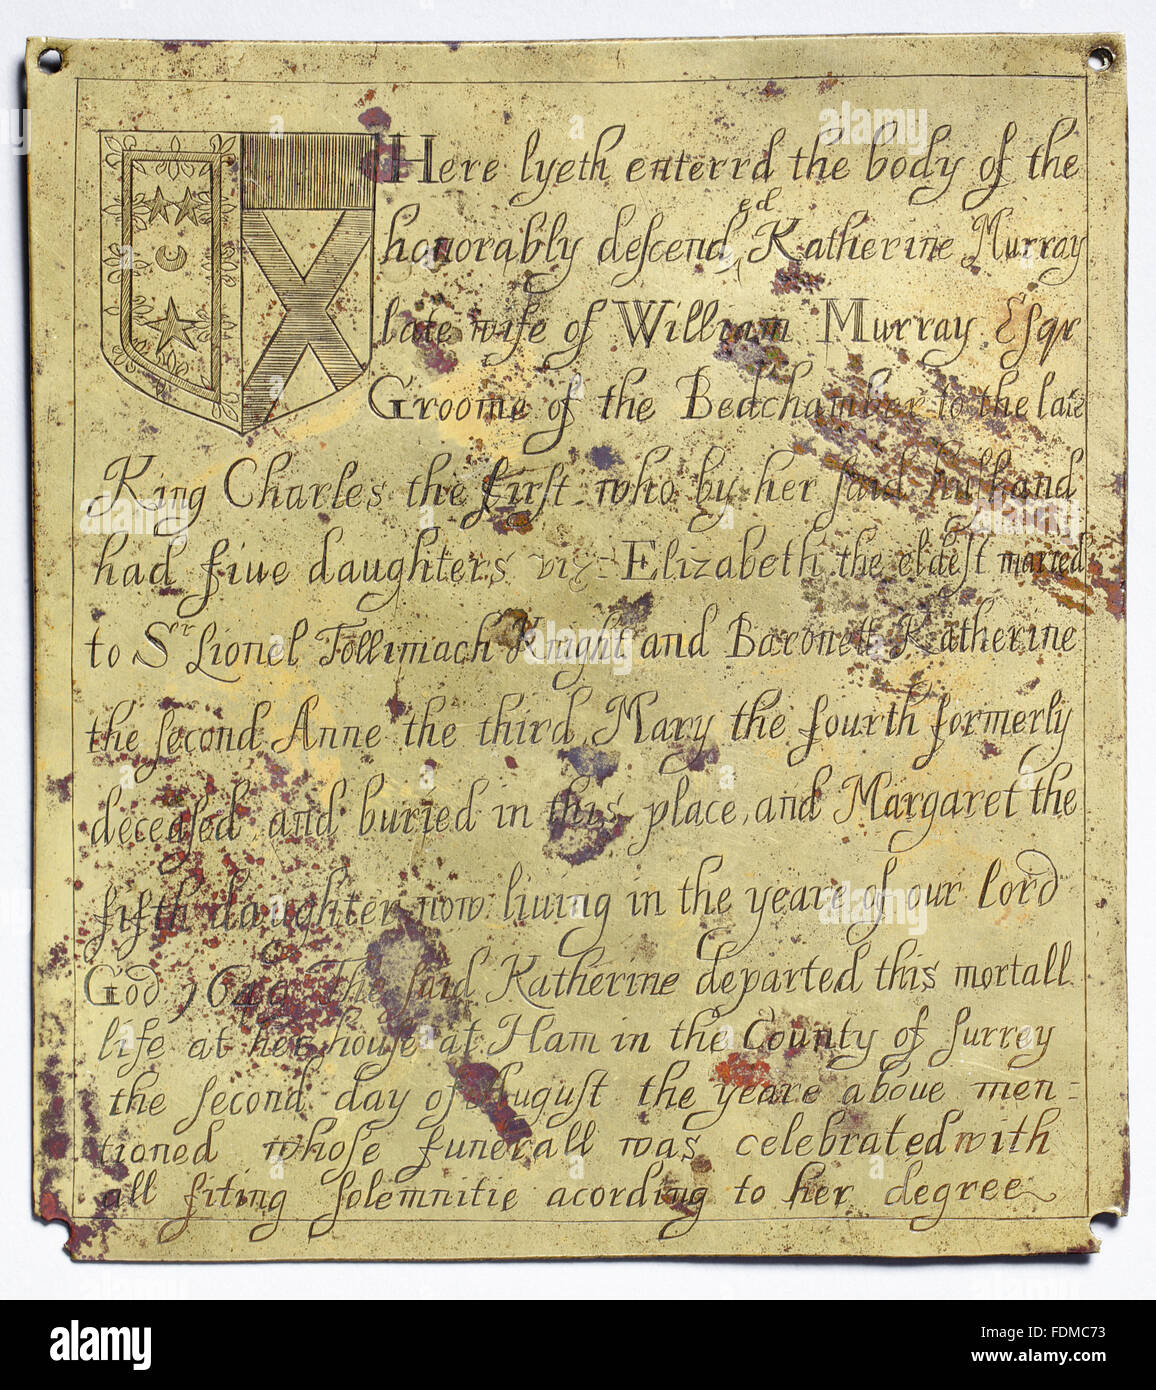 Here lyeth enterrd the body of the
honorably descend^ed Katherine Murray
late wife of William Murray Esqr
Groome of the Bedchamber to the late
King Charles the first who by her said husband
had five daughters viz: Elizabeth the eldest maried
to Sr Lionel Tollimach Knight and Baronett Katherine
the second Anne the third, Mary the fourth formerly
deceased, and buried in this place, and Margaret the
fifth daughter now living in the yeare of our Lord
God 1649 The said Katherine departed this mortall
life at her house at Ham in the County of Surrey
the second day of August the yeare above men=
tioned whose funerall was celebrated with
all fiting solemnitie acording to her degree
alamy
Image ID: FDMC73
www.alamy.com